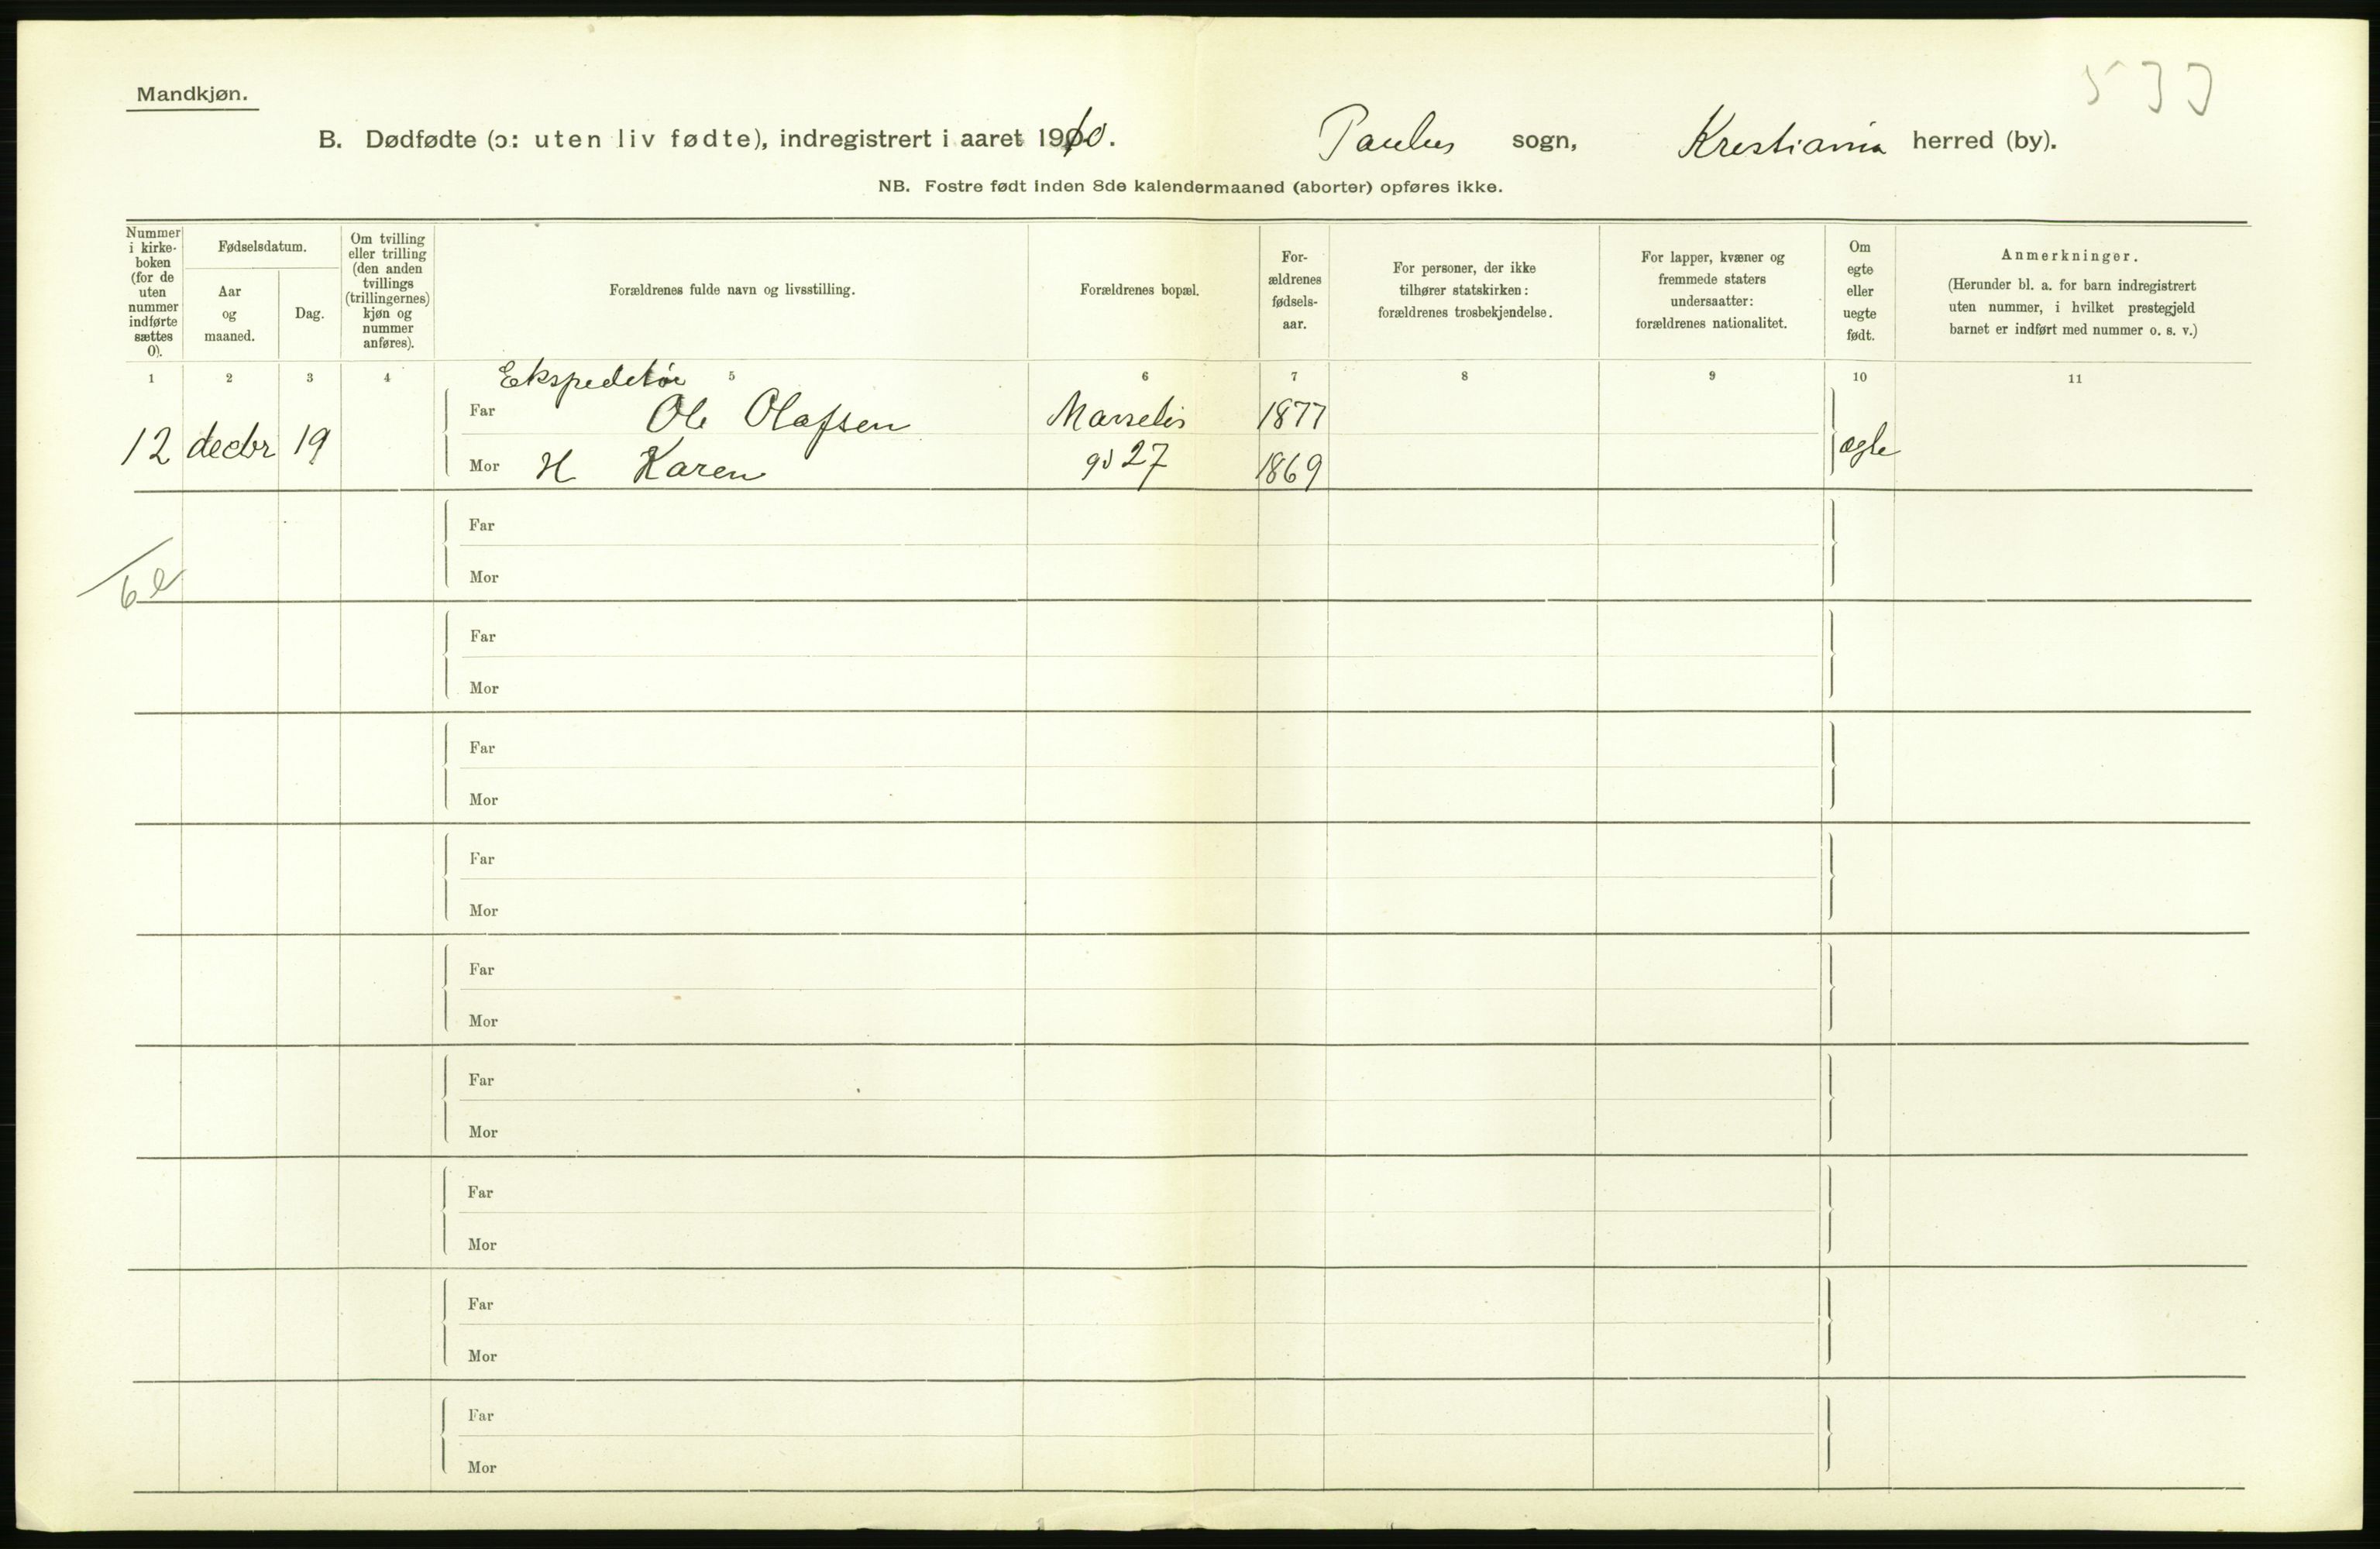 533
Mandkjøn.
B. Dødfødte (ɔ: uten liv fødte), indregistrert i aaret 1910. Paulus sogn, Krestiania herred (by).
NB. Fostre født inden 8de kalendermaaned (aborter) opføres ikke.
Nummer i kirke-
boken
(for de
uten
nummer
indførte
sættes
0).
Fødselsdatum.
Aar
og
maaned.
Dag.
Om tvilling
eller trilling
(den anden
tvillings
(trillingernes)
kjøn og
nummer
anføres).
Forældrenes fulde navn og livsstilling.
Forældrenes bopæl.
For-
ældrenes
fødsels-
aar.
For personer, der ikke
tilhører statskirken:
forældrenes trosbekjendelse.
For lapper, kvæner og
fremmede staters
undersaatter:
forældrenes nationalitet.
Om
egte
eller
uegte
født.
Anmerkninger.
(Herunder bl. a. for barn indregistrert
uten nummer, i hvilket prestegjeld
barnet er indført med nummer o. s. v.)
1 2 3 4 5 6 7 8 9 10 11
Ekspeditør
Far Ole Olafsen Marselis 1877
12 decbr 19 ægte
Mor H Karen gd 27 1869
Far
Mor
Far
Mor
Far
Mor
Far
Mor
Far
Mor
Far
Mor
Far
Mor
Far
Mor
Far
Mor